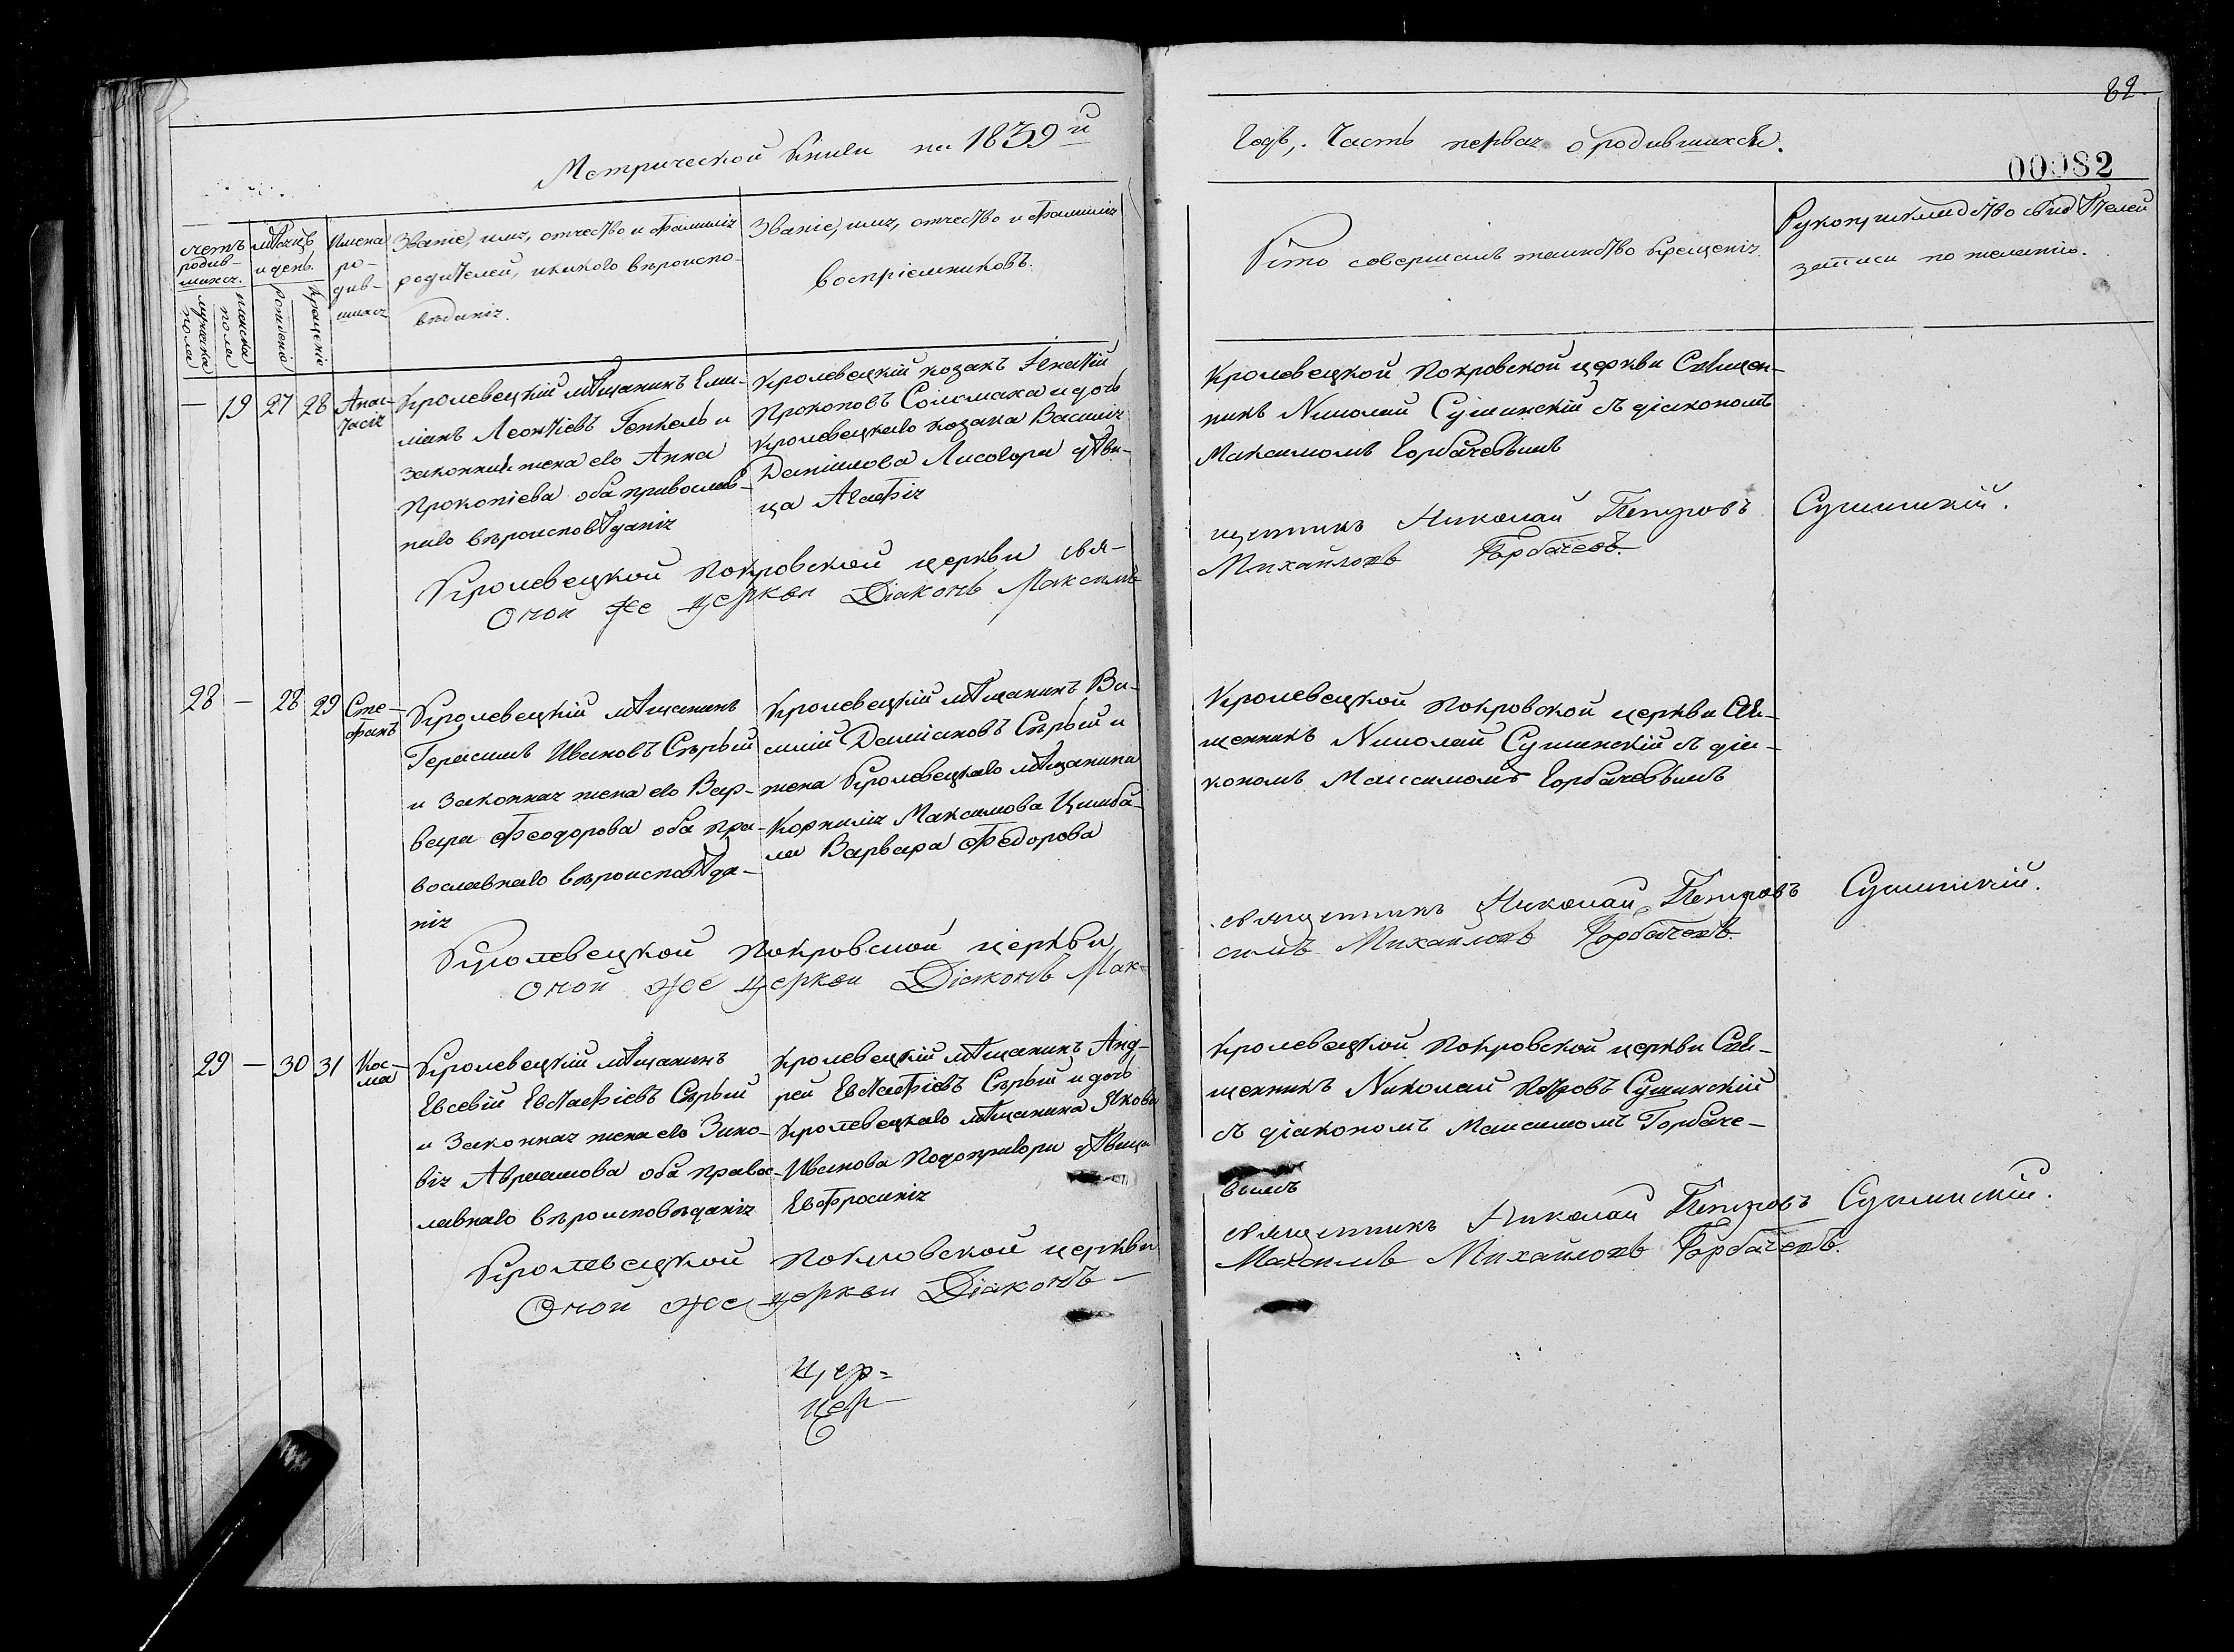 82.
Метрической книги на 1839й
Годъ, Часть первая о родившихся.
00082
счетъ родив-
шихся.
мужеска пола
женска пола
мѣсяцъ
и день.
рожденія
крещенія
Имена
ро-
див-
шихся
Званіе, имя, отчество и фамилія
родителей, и какого вѣроиспо-
вѣданія.
Званіе, имя, отчество и фамилія
воспріемниковъ.
Кто совершалъ таинство крещенія.
Рукоприкладство свидѣтелей
записи по желанію.
— 19 27 28
Анас-
тасія
Кролевецкій мѣщанинъ Еми-
ліанъ Леонтіевъ и
законная жена его Анна
Прокопіева оба православ-
наго вѣроисповѣданія
Кролевецкій козакъ Игнатій
Прокоповъ Соломаха и дочь
Кролевецкаго козака Василія
Даніилова Лисогора дѣви-
ца Агафія
Кролевецкой Покровской церкви Священ-
никъ Николай Сушинскій съ діакономъ
Максимомъ Горбачевымъ
Кролевецкой Покровской церкви свя-
щенникъ Николай Петровъ Сушинскій.
Оной же церкви Діаконъ Максимъ
Михайловъ Горбачевъ.
28 — 28 29
Сте-
фанъ
Кролевецкій мѣщанинъ
Герасимъ Ивановъ Сѣрый
и законная жена его Вар-
вара Феодорова оба пра-
вославнаго вѣроисповѣда-
нія
Кролевецкій мѣщанинъ Ва-
силій Даміановъ Сѣрый и
жена Кролевецкаго мѣщанина
Корнилія Максимова Цимба-
ла Варвара Федорова
Кролевецкой Покровской церкви Свя-
щенникъ Николай Сушинскій съ діа-
кономъ Максимомъ Горбачевымъ
Кролевецкой Покровской церкви
священникъ Николай Петровъ Сушинскій.
Оной же церкви Діаконъ Мак-
симъ Михайловъ Горбачевъ.
29 — 30 31
Кос-
ма
Кролевецкій мѣщанинъ
Евсевій Евстафіевъ Сѣрый
и законная жена его Зино-
вія Аврамова оба правос-
лавнаго вѣроисповѣданія
Кролевецкій мѣщанинъ Анд-
рей Евстафіевъ Сѣрый и дочь
Кролевецкаго мѣщанина Якова
Иванова Подопригоры дѣвица
Евфросинія
Кролевецкой Покровской церкви Свя-
щенникъ Николай Петровъ Сушинскій
съ діакономъ Максимомъ Горбаче-
вымъ
Кролевецкой Покровской церкви
священникъ Николай Петровъ Сушинскій.
Оной же церкви Діаконъ —
Максимъ Михайловъ Горбачевъ.
Цер=
Цер-